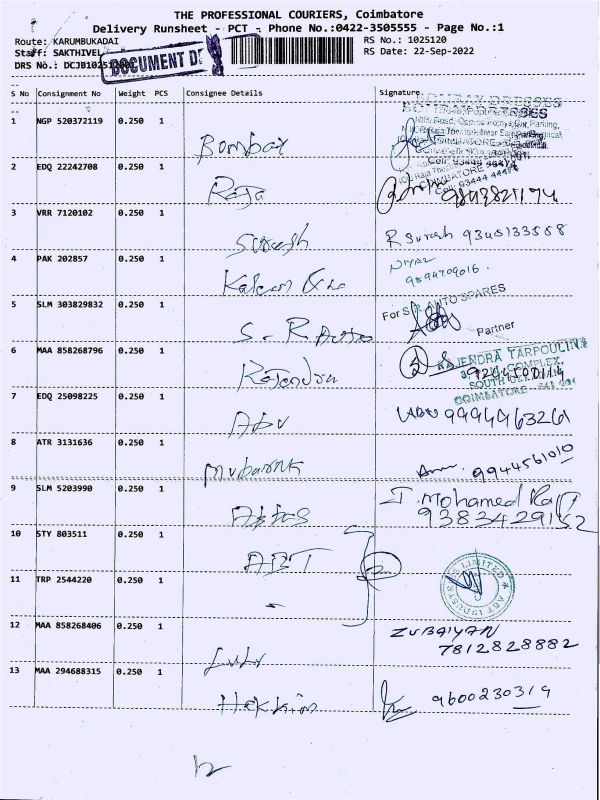 THE PROFESSIONAL COURIERS, Coimbatore
Delivery Runsheet - PCT - Phone No.:0422-3505555 - Page No.:1
Route: KARUMBUKADAI RS No.: 1025120
Staff: SAKTHIVEL RS Date: 22-Sep-2022
DRS No.: DCJB1025120
DOCUMENT DE
S No Consignment No Weight PCS Consignee Details Signature
BOMBAY DRESSES
1 NGP 520372119 0.250 1
Bombay
2 EDQ 22242708 0.250 1
Raja
3 VRR 7120102 0.250 1
Suresh R Suresh 9345133568
4 PAK 202857 0.250 1
Niyaz
9894709016.
5 SLM 303829832 0.250 1
For S R AUTO SPARES
S. R Auto
Partner
6 MAA 858268796 0.250 1
Rajendra
RAJENDRA TARPOULINS
COMPLEX,
COIMBATORE
7 EDQ 25098225 0.250 1
Abu
8 ATR 3131636 0.250 1
Mubarak
9944561010
9 SLM 5203990 0.250 1
Abbas
J. Mohamed Rafi
9383429152
10 STY 803511 0.250 1
ABT
11 TRP 2544220 0.250 1
LIMITED
12 MAA 858268406 0.250 1
ZUBAIYAN
7812828882
13 MAA 294688315 0.250 1
Hakkim 9600230319